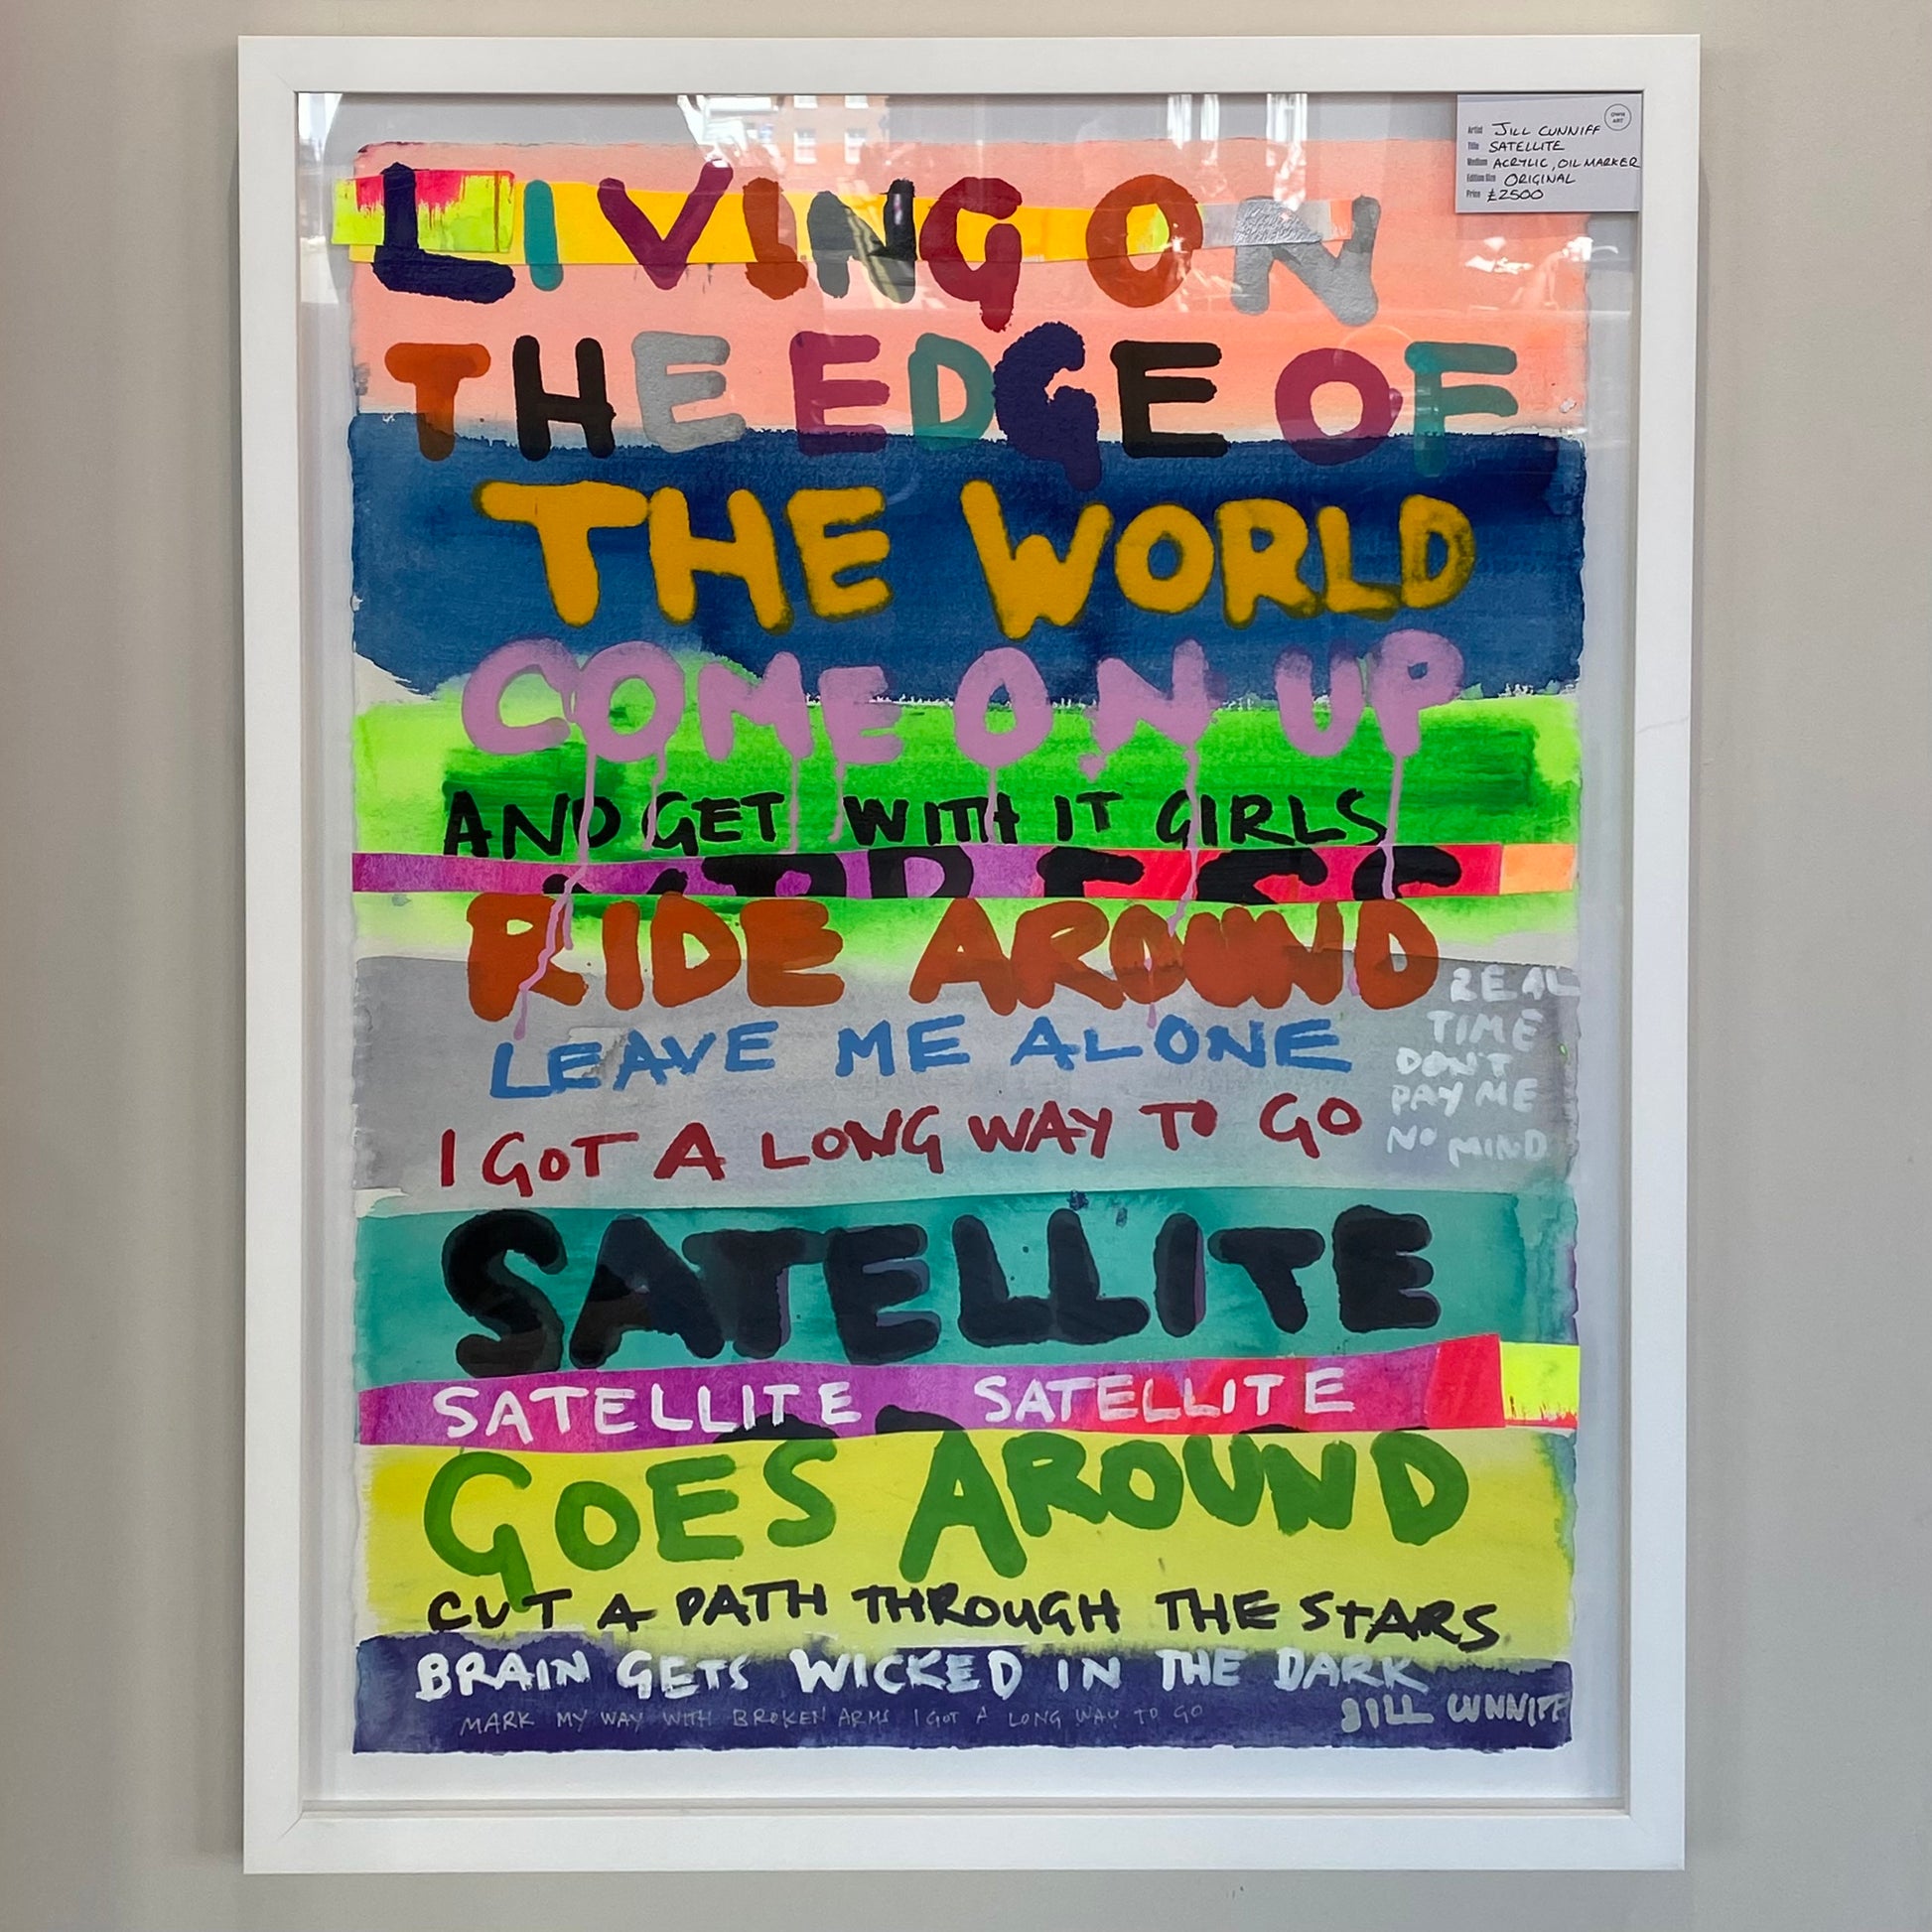 LIVING ON
THE EDGE OF
THE WORLD
COME ON UP
AND GET WITH IT GIRLS
RIDE AROUND
LEAVE ME ALONE
I GOT A LONG WAY TO GO
REAL
TIME
DON'T
PAY ME
NO MIND
SATELLITE
SATELLITE SATELLITE
GOES AROUND
CUT A PATH THROUGH THE STARS
BRAIN GETS WICKED IN THE DARK
MARK MY WAY WITH BROKEN ARMS I GOT A LONG WAY TO GO
JILL CUNNIFF
Artist JILL CUNNIFF
Title SATELLITE
Medium ACRYLIC, OIL MARKER
Edition Size ORIGINAL
Price £2500
OWN
ART